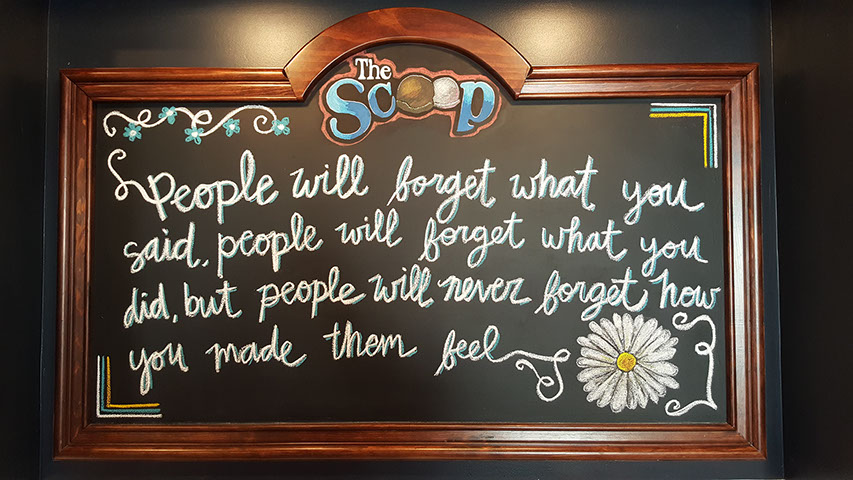 The
Scoop
People will forget what you
said, people will forget what you
did, but people will never forget how
you made them feel